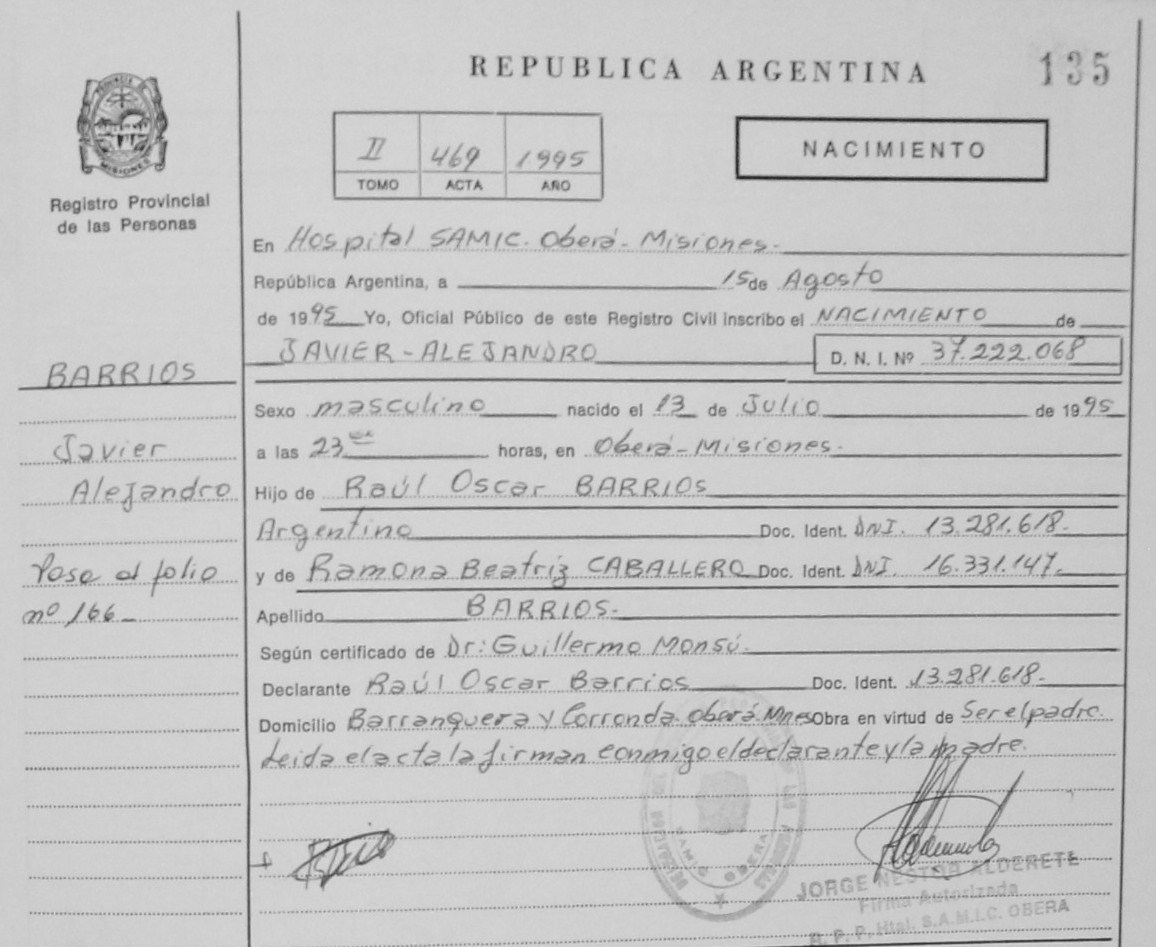 REPUBLICA ARGENTINA
135
PROVINCIA DE MISIONES
Registro Provincial
de las Personas
II 469 1995
TOMO ACTA AÑO
NACIMIENTO
En Hospital SAMIC. Oberá - Misiones.
República Argentina, a 15 de Agosto
de 1995 Yo, Oficial Público de este Registro Civil inscribo el NACIMIENTO de
JAVIER - ALEJANDRO D. N. I. Nº 37.222.068
BARRIOS
Sexo masculino nacido el 13 de Julio de 1995
Javier
a las 23 horas, en Oberá - Misiones.
Alejandro
Hijo de Raúl Oscar BARRIOS
Argentino Doc. Ident. DNI. 13.281.618.
Pasa al folio
nº 166
y de Ramona Beatriz CABALLERO Doc. Ident. DNI. 16.331.147.
Apellido BARRIOS.
Según certificado de Dr: Guillermo Monsú.
Declarante Raúl Oscar Barrios Doc. Ident. 13.281.618.
Domicilio Barranquera y Corronda. Oberá Mnes Obra en virtud de Ser el padre.
Leida el acta la firman conmigo el declarante y la madre.
SAMIC OBERA
JORGE NESTOR ALDERETE
Firma Autorizada
R. P. P. Htal. S.A.M.I.C. OBERA